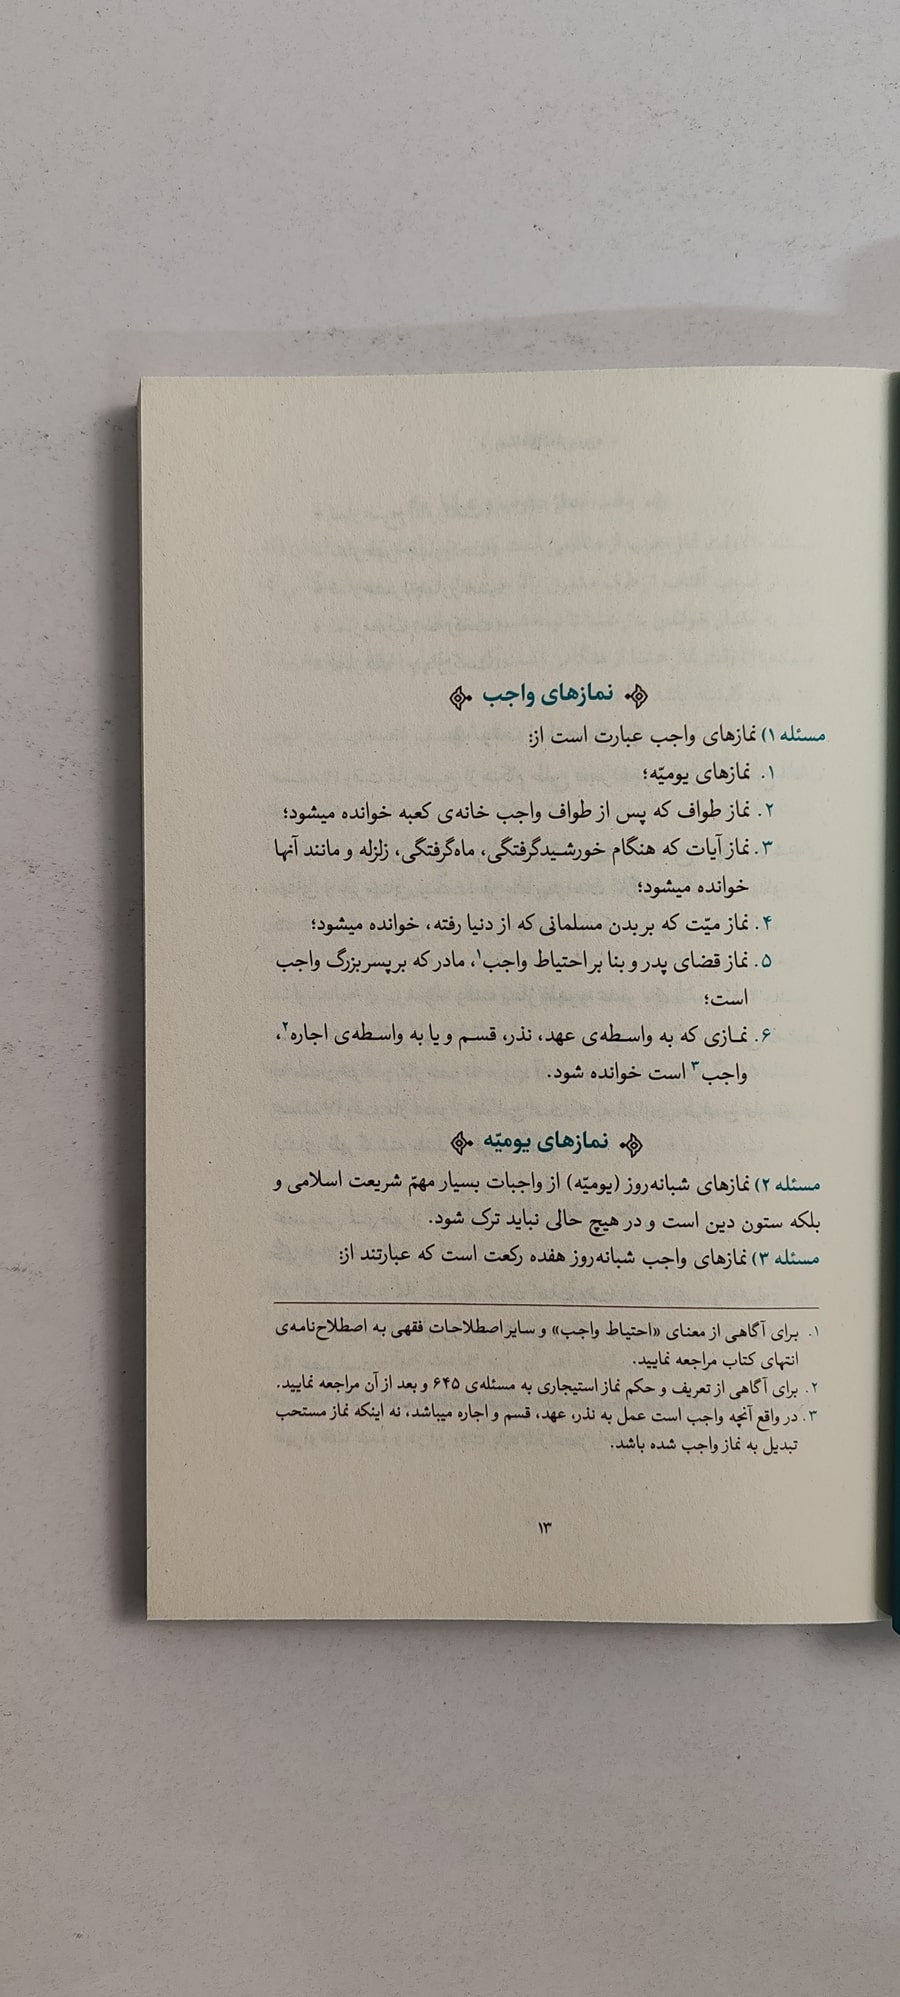 نمازهای واجب
مسئله ۱) نمازهای واجب عبارت است از:
۱. نمازهای یومیّه؛
۲. نماز طواف که پس از طواف واجب خانه‌ی کعبه خوانده میشود؛
۳. نماز آیات که هنگام خورشیدگرفتگی، ماه‌گرفتگی، زلزله و مانند آنها
خوانده میشود؛
۴. نماز میّت که بر بدن مسلمانی که از دنیا رفته، خوانده میشود؛
۵. نماز قضای پدر و بنا بر احتیاط واجب۱، مادر که بر پسر بزرگ واجب
است؛
۶. نمازی که به واسطه‌ی عهد، نذر، قسم و یا به واسطه‌ی اجاره۲،
واجب۳ است خوانده شود.
نمازهای یومیّه
مسئله ۲) نمازهای شبانه‌روز (یومیّه) از واجبات بسیار مهمّ شریعت اسلامی و
بلکه ستون دین است و در هیچ حالی نباید ترک شود.
مسئله ۳) نمازهای واجب شبانه‌روز هفده رکعت است که عبارتند از:
۱. برای آگاهی از معنای «احتیاط واجب» و سایر اصطلاحات فقهی به اصطلاح‌نامه‌ی
انتهای کتاب مراجعه نمایید.
۲. برای آگاهی از تعریف و حکم نماز استیجاری به مسئله‌ی ۶۴۵ و بعد از آن مراجعه نمایید.
۳. در واقع آنچه واجب است عمل به نذر، عهد، قسم و اجاره میباشد، نه اینکه نماز مستحب
تبدیل به نماز واجب شده باشد.
۱۳